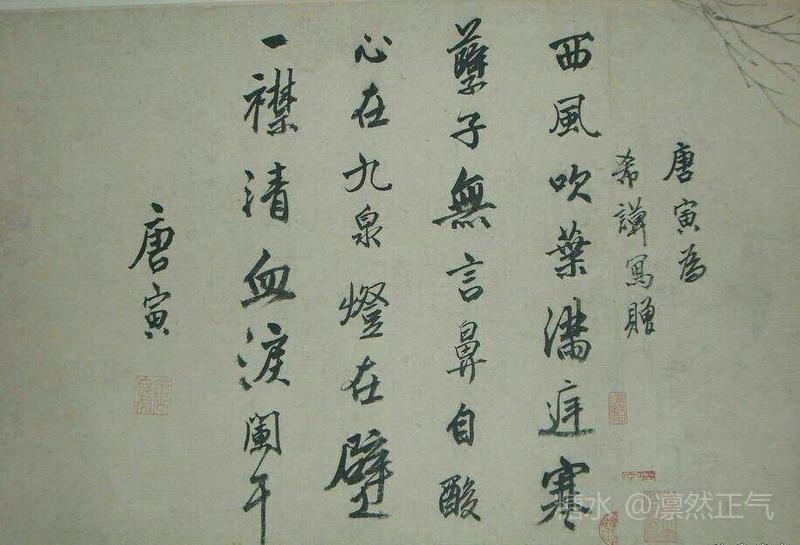 唐寅為
希謨寫贈
西風吹葉滿庭寒
孽子無言鼻自酸
心在九泉燈在壁
一襟清血淚闌干
唐寅
@凛然正气